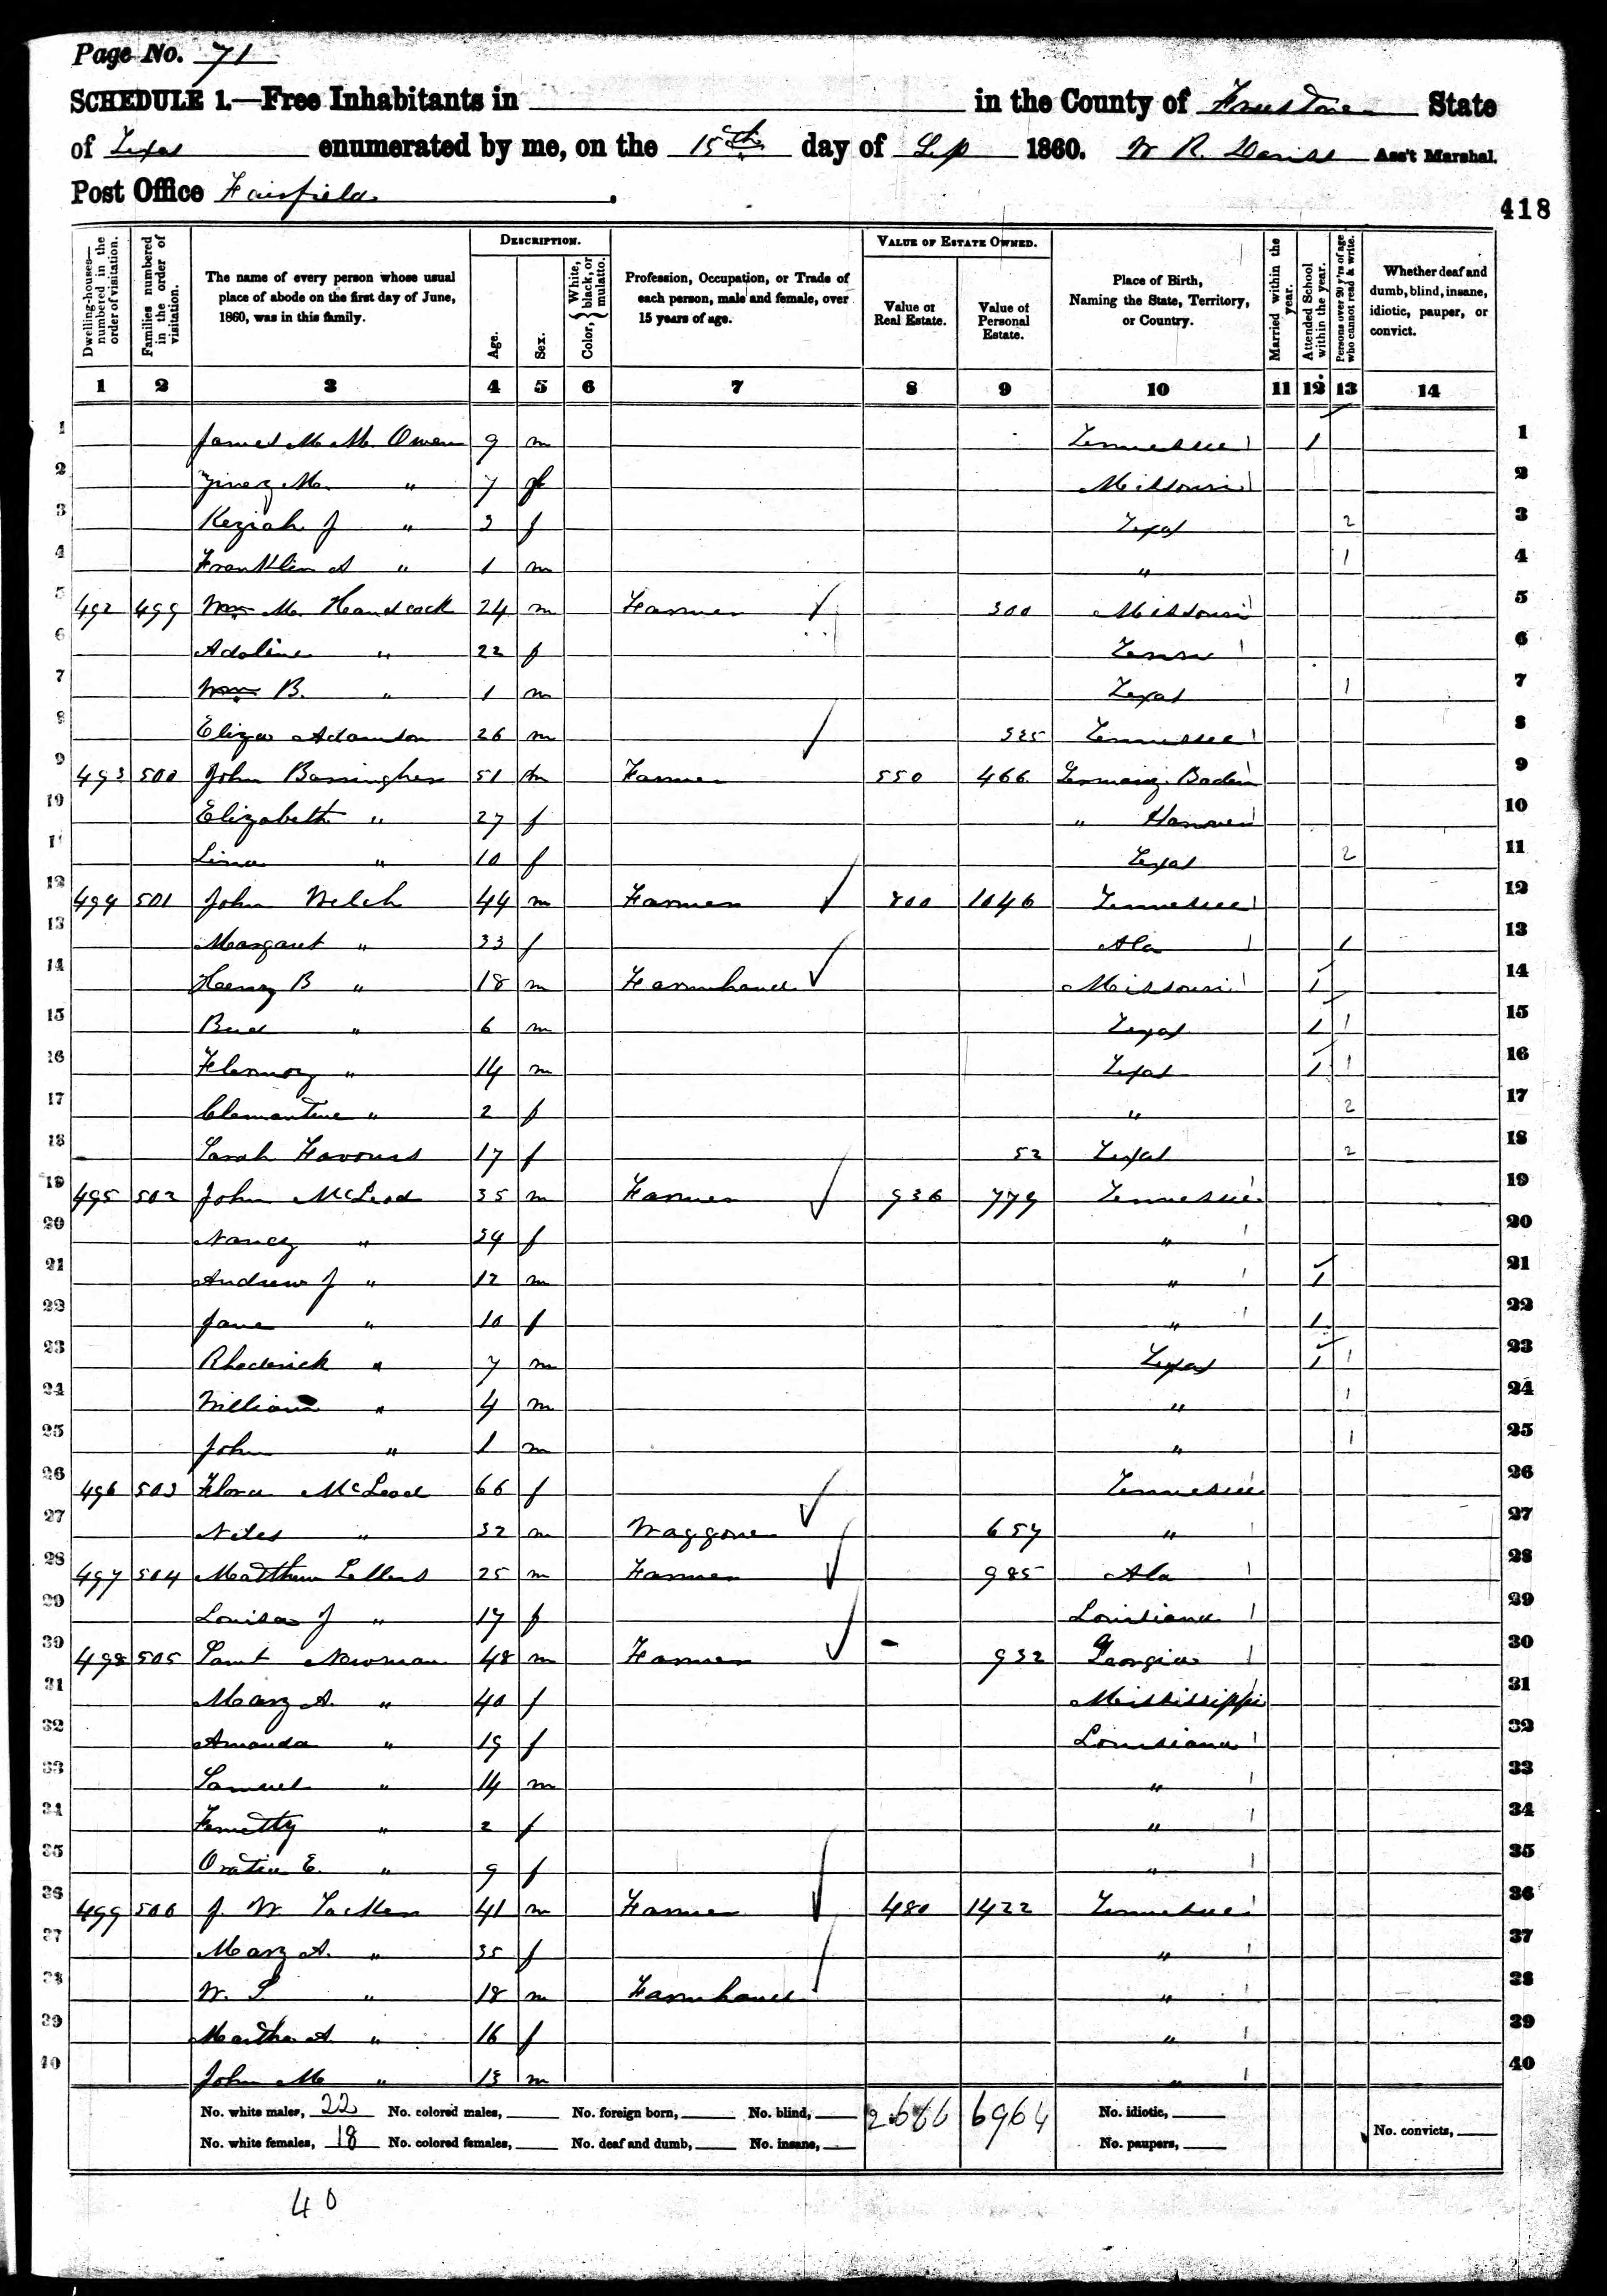 Page No. 71
SCHEDULE 1.—Free Inhabitants in in the County of Freestone State
of Texas enumerated by me, on the 15th day of Sep 1860. W R Ass't Marshal.
Post Office Fairfield.
418
Dwelling-houses—numbered in the order of visitation. Families numbered in the order of visitation. The name of every person whose usual place of abode on the first day of June, 1860, was in this family. DESCRIPTION. Age. Sex. Color, { White, black, or mulatto. Profession, Occupation, or Trade of each person, male and female, over 15 years of age. VALUE OF ESTATE OWNED. Value of Real Estate. Value of Personal Estate. Place of Birth, Naming the State, Territory, or Country. Married within the year. Attended School within the year. Persons over 20 y'rs of age who cannot read & write. Whether deaf and dumb, blind, insane, idiotic, pauper, or convict.
1 2 3 4 5 6 7 8 9 10 11 12 13 14
1 James M. M. Owen 9 m Tennessee 1 1
2 M. " 7 f Missouri 2
3 Keziah J " 3 f Texas 2 3
4 Franklin A " 1 m " 1 4
5 492 499 Wm M. Handcock 24 m Farmer 300 Missouri 5
6 Adoline " 22 f Tenne 6
7 Wm B. " 1 m Texas 1 7
8 Eliza Adamson 26 m 325 Tennessee 8
9 493 500 John 51 m Farmer 550 466 Germany Baden 9
10 Elizabeth " 27 f " Hanover 10
11 Lina " 10 f Texas 2 11
12 494 501 John Welch 44 m Farmer 800 1046 Tennessee 12
13 Margaret " 33 f Ala 1 13
14 Henry B " 18 m Farmhand Missouri 1 14
15 Bud " 6 m Texas 1 1 15
16 Flennoy " 14 m Texas 1 1 16
17 Clemantine " 2 f " 2 17
18 Sarah Favours 17 f 52 Texas 2 18
19 495 502 John McLeod 35 m Farmer 936 779 Tennessee 19
20 Nancy " 34 f " 20
21 Andrew J " 12 m " 1 21
22 Jane " 10 f " 1 22
23 Rhoderick " 7 m Texas 1 1 23
24 William " 4 m " 1 24
25 John " 1 m " 1 25
26 496 503 Flora McLeod 66 f Tennessee 26
27 Niles " 32 m Waggoner 657 " 27
28 497 504 Matthew Sellers 25 m Farmer 985 Ala 28
29 Louisa J " 17 f Louisiana 29
30 498 505 Saml Newman 48 m Farmer - 932 Georgia 30
31 Mary A. " 40 f Mississippi 31
32 Amanda " 19 f Louisiana 32
33 Samuel " 14 m " 33
34 " 2 f " 34
35 E. " 9 f " 35
36 499 506 J. W. 41 m Farmer 480 1422 Tennessee 36
37 Mary A. " 35 f " 37
38 W. S. " 18 m Farmhand " 38
39 Martha A. " 16 f " 39
40 John M " 13 m " 40
No. white males, 22 No. colored males, No. foreign born, No. blind, 2666 6964 No. idiotic,
No. white females, 18 No. colored females, No. deaf and dumb, No. insane, No. paupers, No. convicts,
40